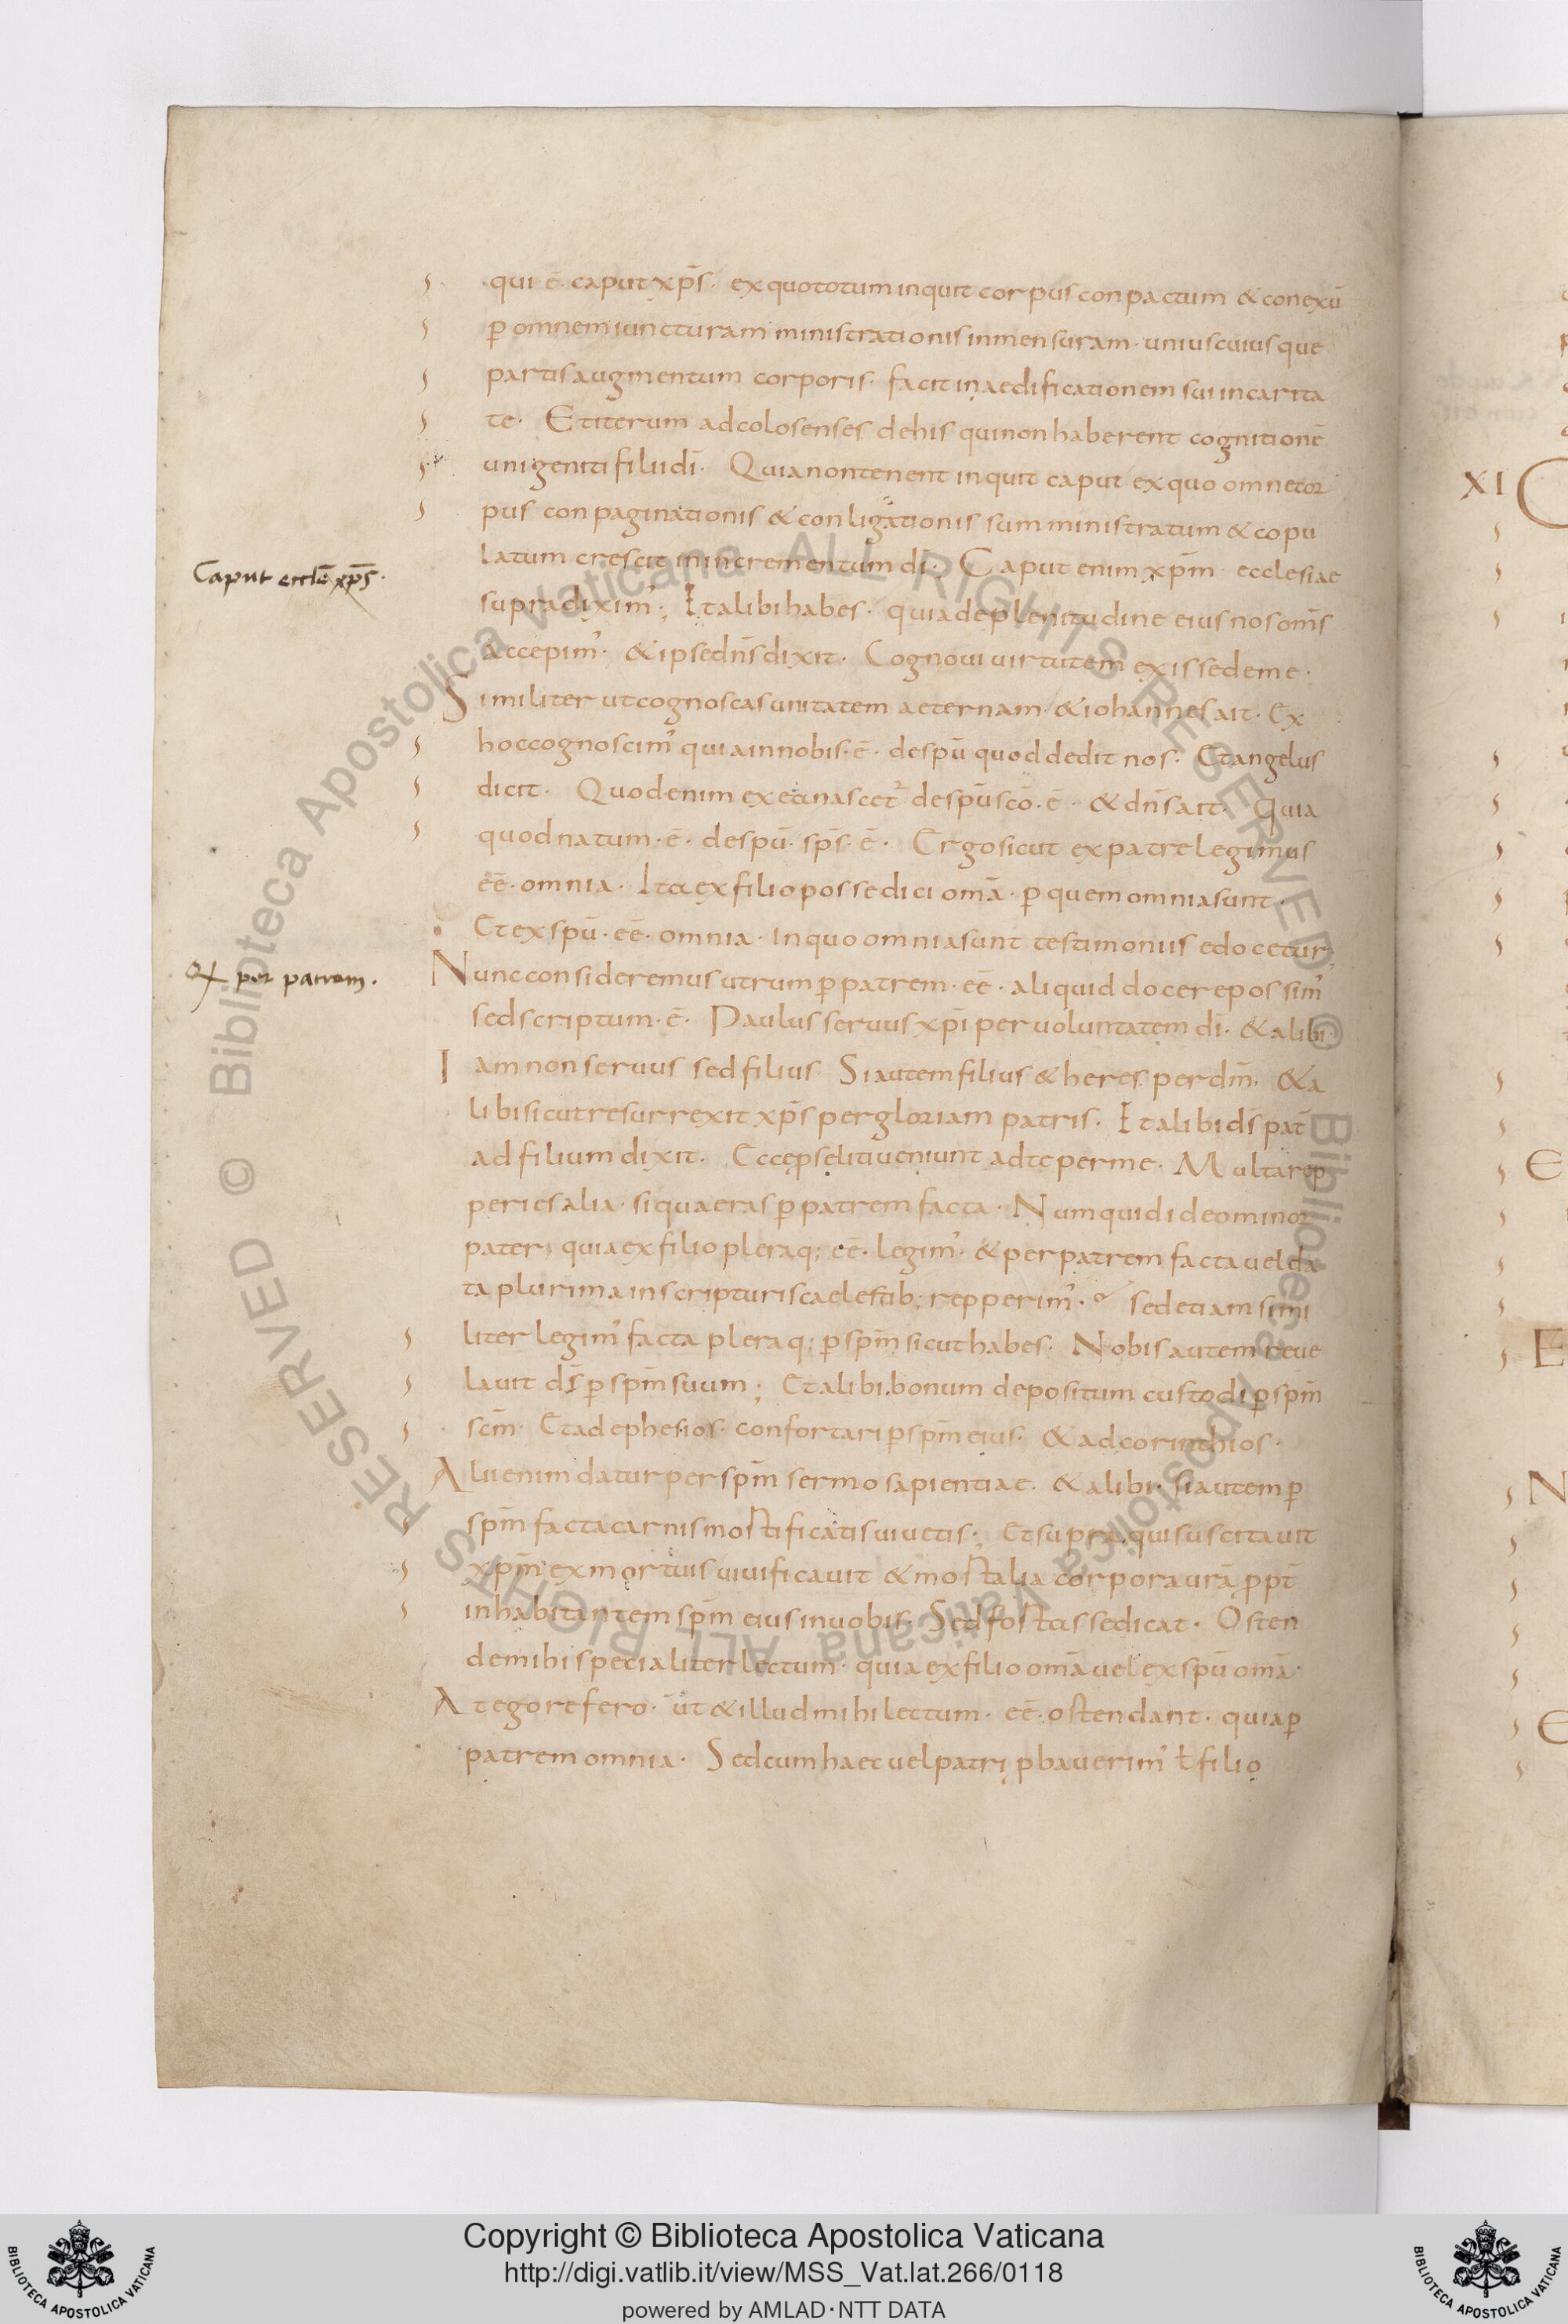 qui ē· caput xp̄s· ex quo totum inquit corpus conpactum & conexū
ꝑ omnem iuncturam ministrationis in mensuram· unius cuiusque
partis augmentum corporis· facit in aedificationem sui in carita
te· Et iterum ad colosenses de his qui non haberent cognitionē
unigeniti filii dī· Quia non tenent inquit caput ex quo omne cor
pus conpaginationis & conligationis subministratum & copu
latum crescit in incrementum dī· Caput enim xp̄m ecclesiae
Caput eccle̅ xp̄s·
supra diximꝰ; Et alibi habes· quia de plenitudine eius nos om̄s
accepimꝰ· & ipse dn̄s dixit· Cognovi uirtutem exisse de me·
Similiter ut cognoscas unitatem aeternam· & iohannes ait· Ex
hoc cognoscimꝰ quia in nobis· ē· de spū quod dedit nos· Et angelus
dicit· Quod enim ex ea nascet᷑ de spū scō· ē· & dn̄s ait· Quia
quod natum· ē· de spū· sp̄s· ē· Ergo sicut ex patre legimus
eē· omnia· Ita ex filio posse dici omā· ꝑ quem omnia sunt·
Et ex spū· eē· omnia· in quo omnia sunt testimoniis edocetur;
Nunc consideremus utrum ꝑ patrem· eē· aliquid docere possimꝰ
per patrem·
sed scriptum· ē· Paulus seruus xp̄i per uoluntatem dī· & alibi·
Iam non seruus sed filius Si autem filius & heres per dm̄· & a
libi sicut resurrexit xp̄s per gloriam patris· Et alibi ds̄ pat̄
ad filium dixit· Ecce ꝓseliti ueniunt ad te per me· Multa rep
peries alia· si quaeras ꝑ patrem facta· Numquid ideo minor
pater quia ex filio pleraq; eē· legimꝰ· & per patrem facta uel da
ta plurima in scripturis caelestib; repperimꝰ· sed etiam simi
liter legimꝰ facta pleraq; ꝑ spm̄ sicut habes· Nobis autem reue
lauit ds̄ ꝑ spm̄ suum; Et alibi· bonum depositum custodi ꝑ spm̄
scm̄· Et ad ephesios· confortari ꝑ spm̄ eius· & ad corinthios·
Alii enim datur per spm̄ sermo sapientiae· & alibi· Si autem ꝑ
spm̄ facta carnis mortificatis uiuetis; Et supra· qui suscitauit
xpm̄ ex mortuis uiuificauit & mortalia corpora ur̄a ꝓpt̄
inhabitantem spm̄ eius in uobis· Sed fortasse dicat· Osten
de mihi specialiter lectum· quia ex filio omā uel ex spū omā·
At ego refero· ūt & illud mihi lectum· eē· ostendant· quia ꝑ
patrem omnia· Sed cum haec uel patri ꝓbauerimꝰ ł filio
XI
E
E
N
E
Copyright © Biblioteca Apostolica Vaticana
http://digi.vatlib.it/view/MSS_Vat.lat.266/0118
powered by AMLAD·NTT DATA
BIBLIOTECA APOSTOLICA VATICANA
BIBLIOTECA APOSTOLICA VATICANA
© Biblioteca Apostolica Vaticana ALL RIGHTS RESERVED © Biblioteca Apostolica Vaticana ALL RIGHTS RESERVED